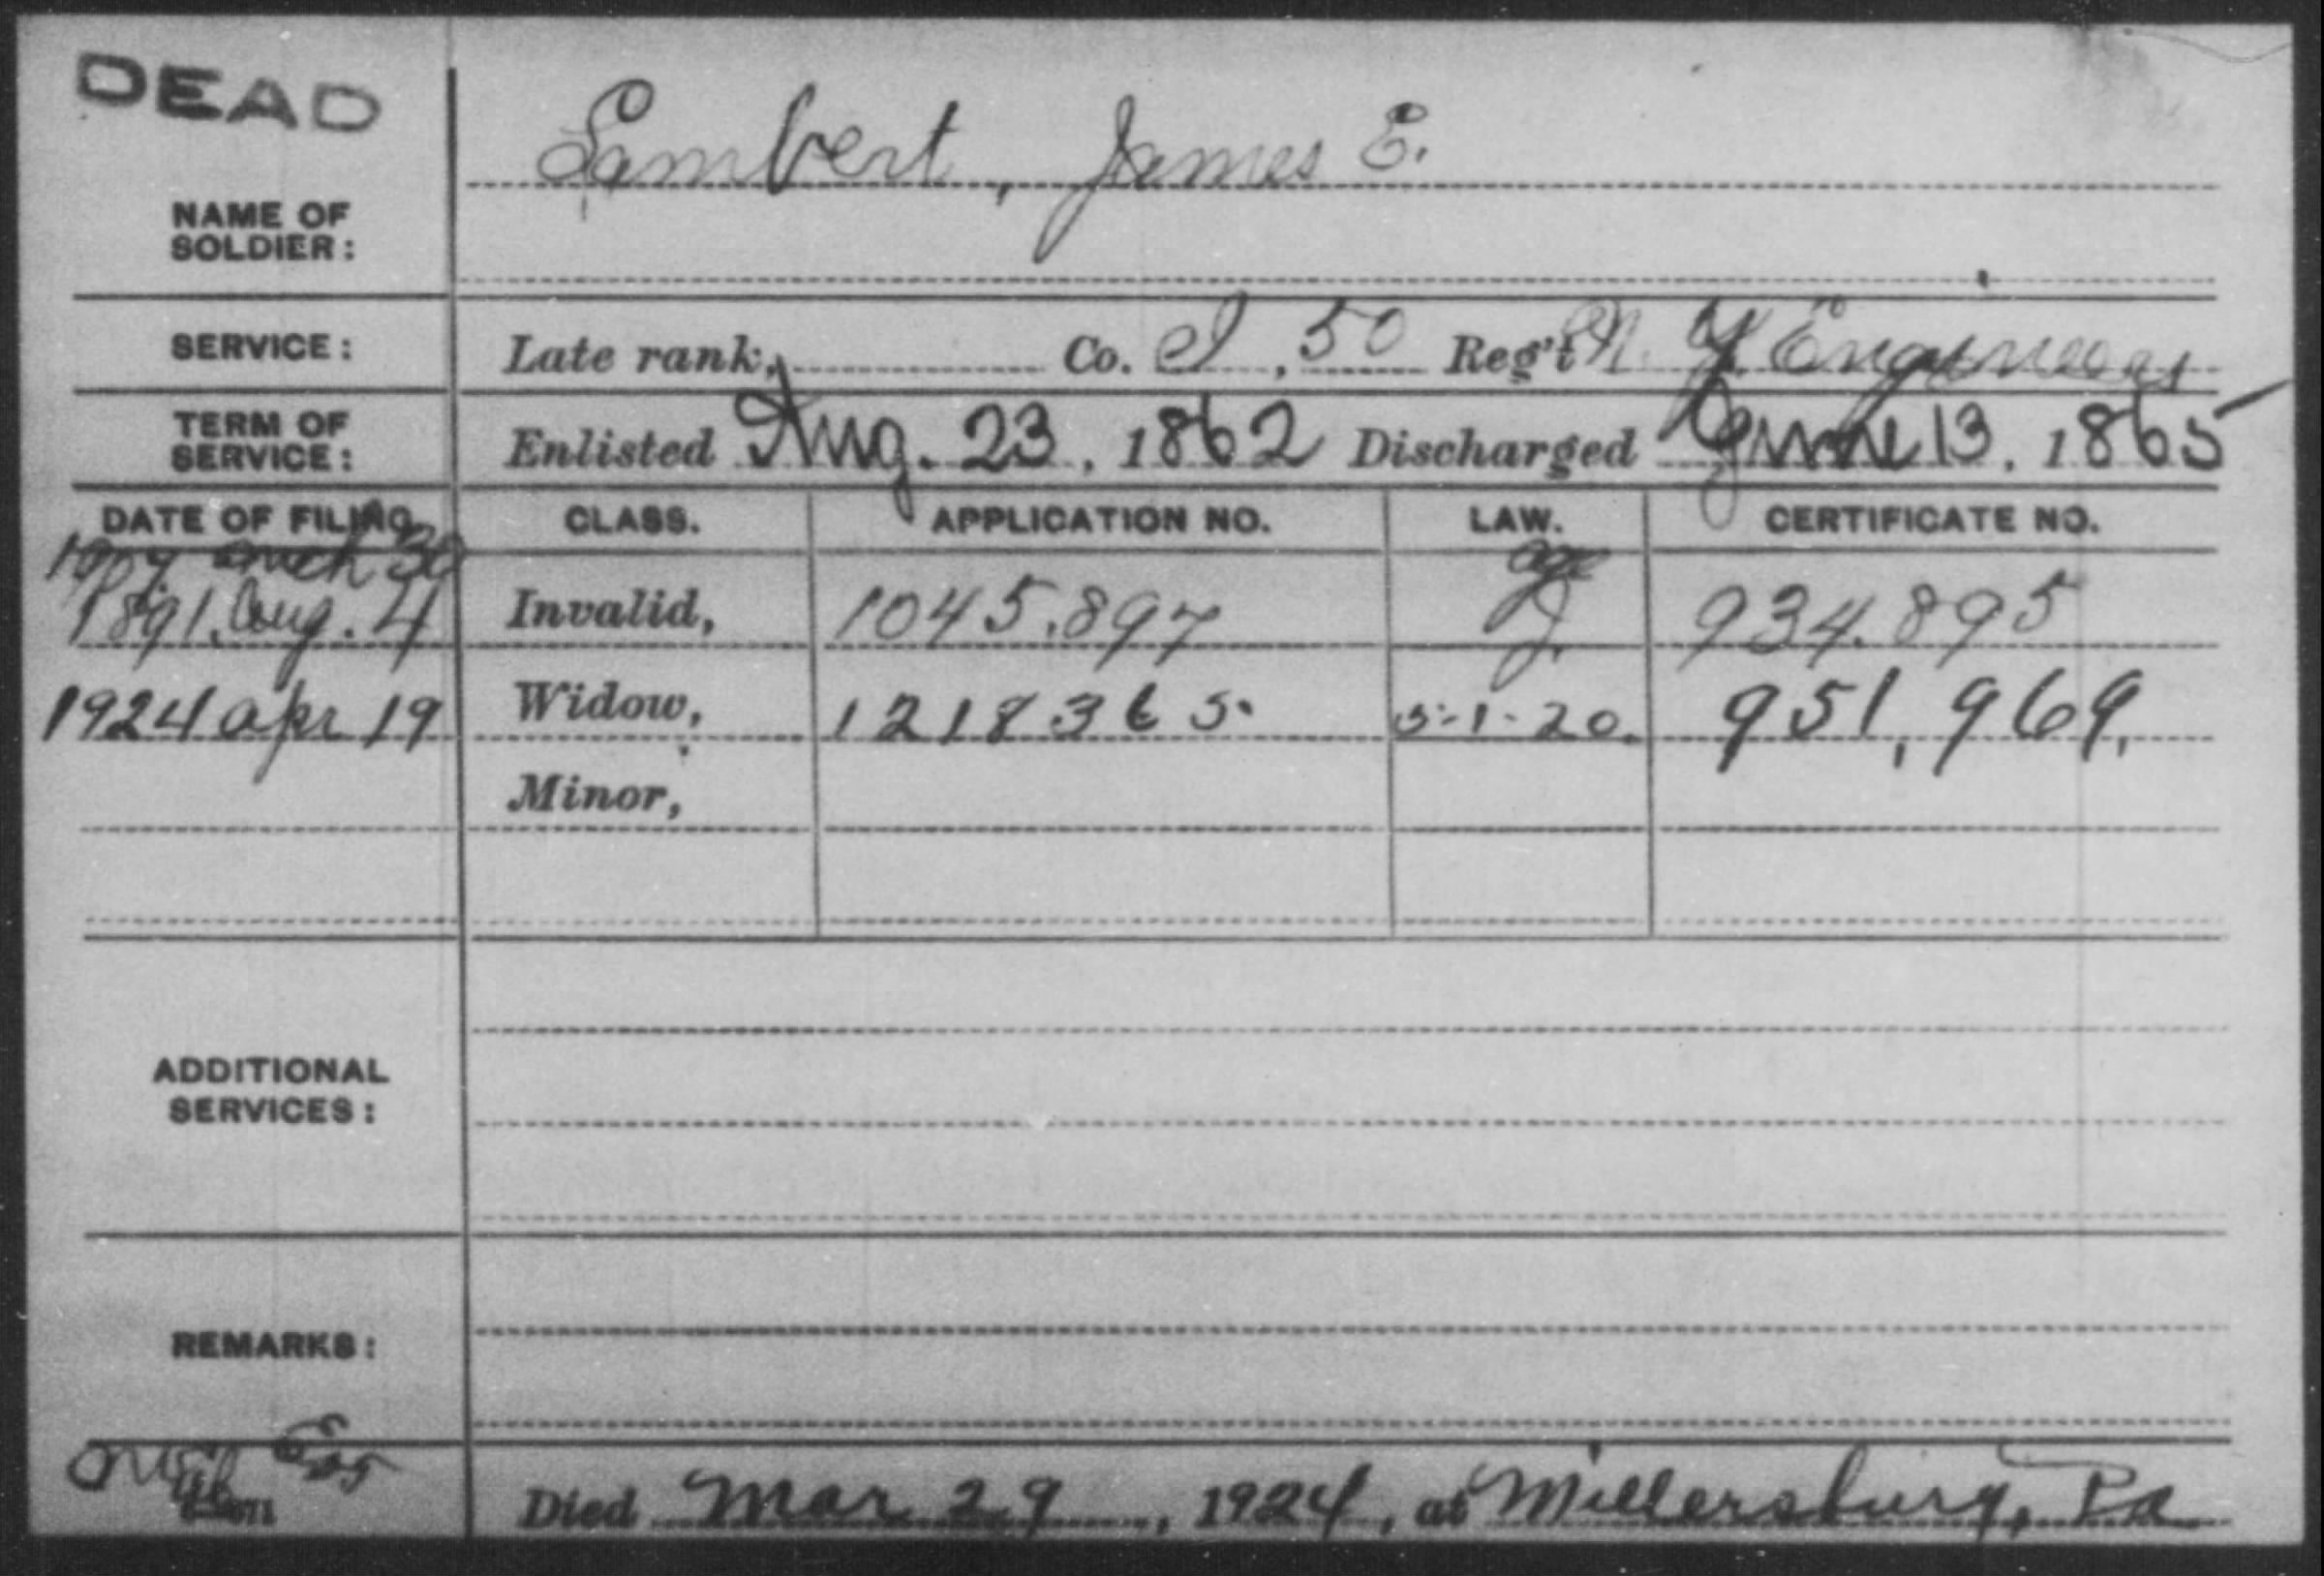 DEAD
Lambert, James E.
NAME OF
SOLDIER:
SERVICE: Late rank, Co. I, 50 Reg't N. Y. Engineers
TERM OF
SERVICE: Enlisted Aug. 23, 1862 Discharged June 13, 1865
DATE OF FILING. CLASS. APPLICATION NO. LAW. CERTIFICATE NO.
1907 Mch 30 age
1891 Aug. 4 Invalid, 1045.897 J. 934.895
1924 apr 19 Widow, 1218365. 5-1-20. 951,969.
Minor,
ADDITIONAL
SERVICES:
REMARKS:
Died Mar 29, 1924, at Millersburg, Pa